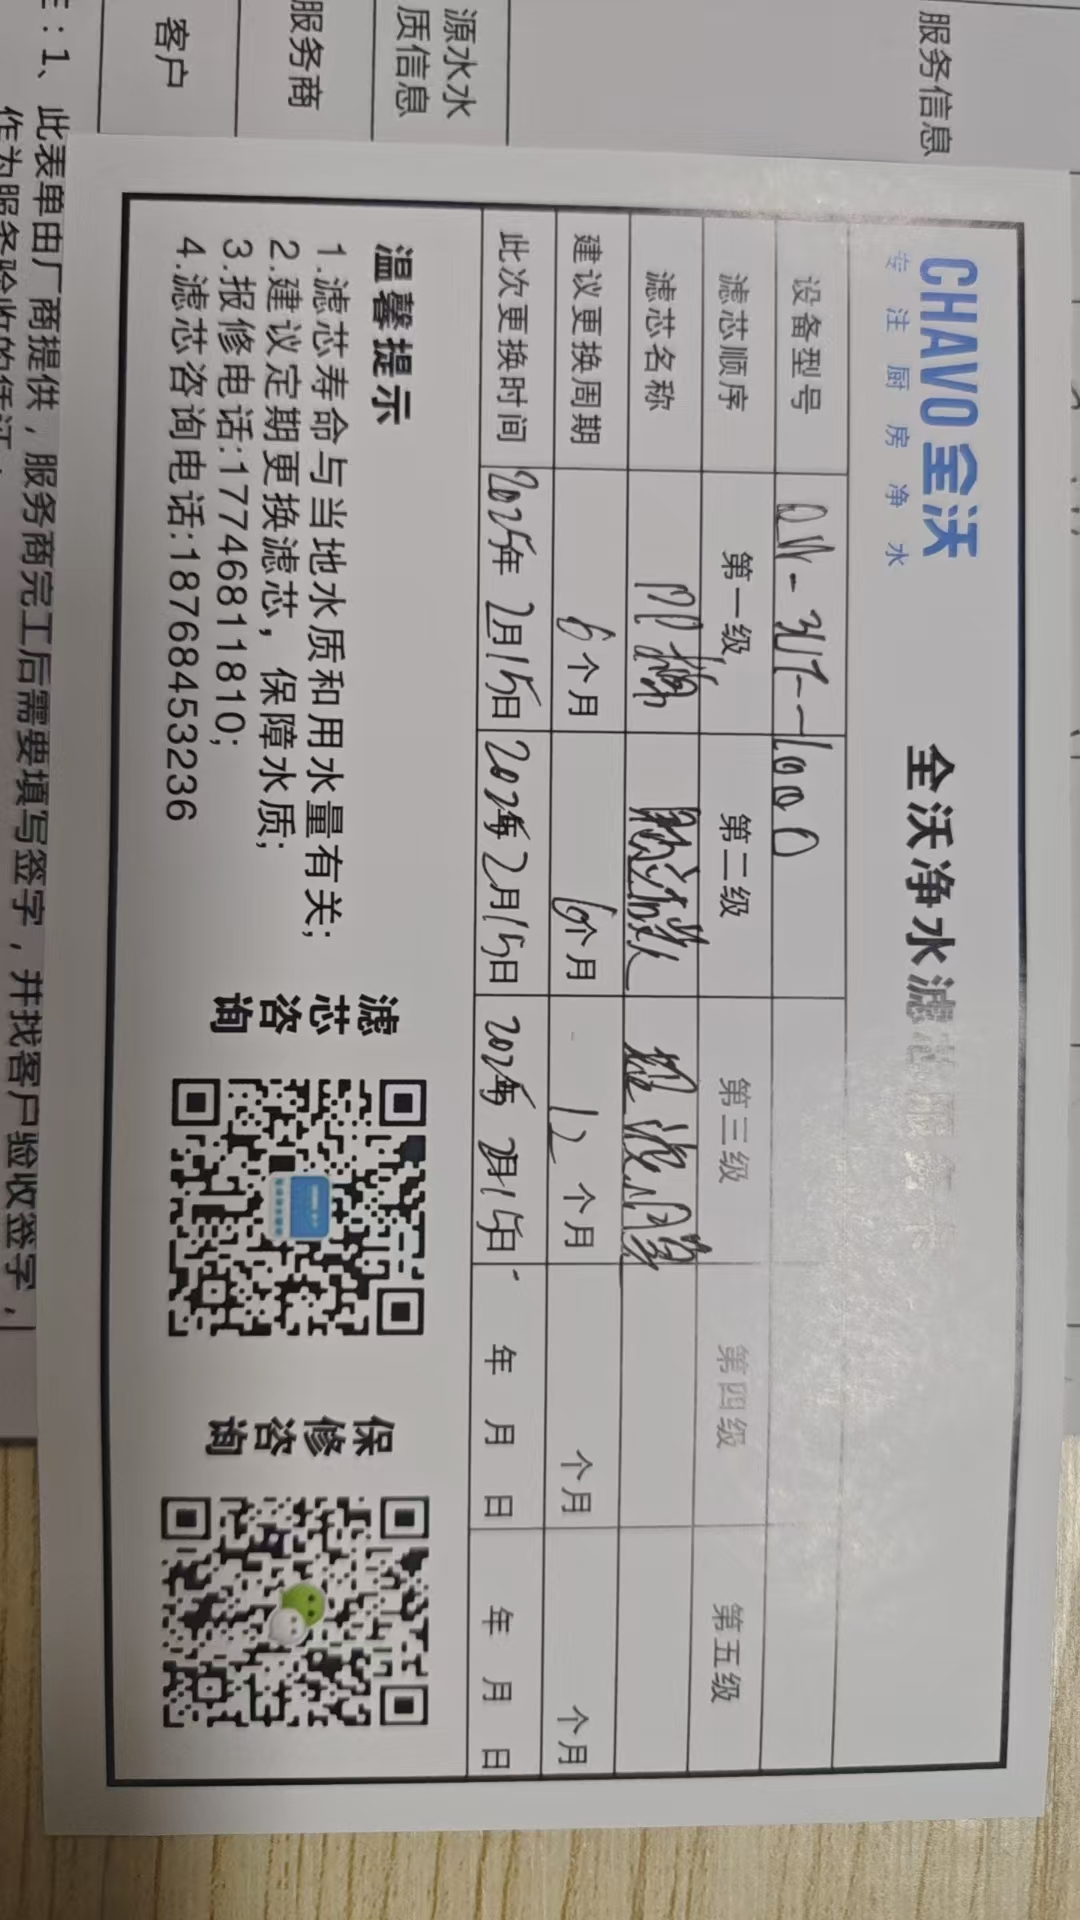 服务信息
源水水
质信息
服务商
客户
：1、此表单由厂商提供，服务商完工后需要填写签字，并找客户验收签字，
作为服务验收的凭证
CHAVO 全沃
专注厨房净水
全沃净水滤芯服务卡
设备型号
滤芯顺序 第一级 第二级 第三级 第四级 第五级
滤芯名称
建议更换周期 6个月 6个月 12个月 个月 个月
此次更换时间 2025年2月15日 2025年2月15日 2025年2月15日 年 月 日 年 月 日
温馨提示
1.滤芯寿命与当地水质和用水量有关；
2.建议定期更换滤芯，保障水质；
3.报修电话:17746811810；
4.滤芯咨询电话:18768453236
滤芯咨询
保修咨询